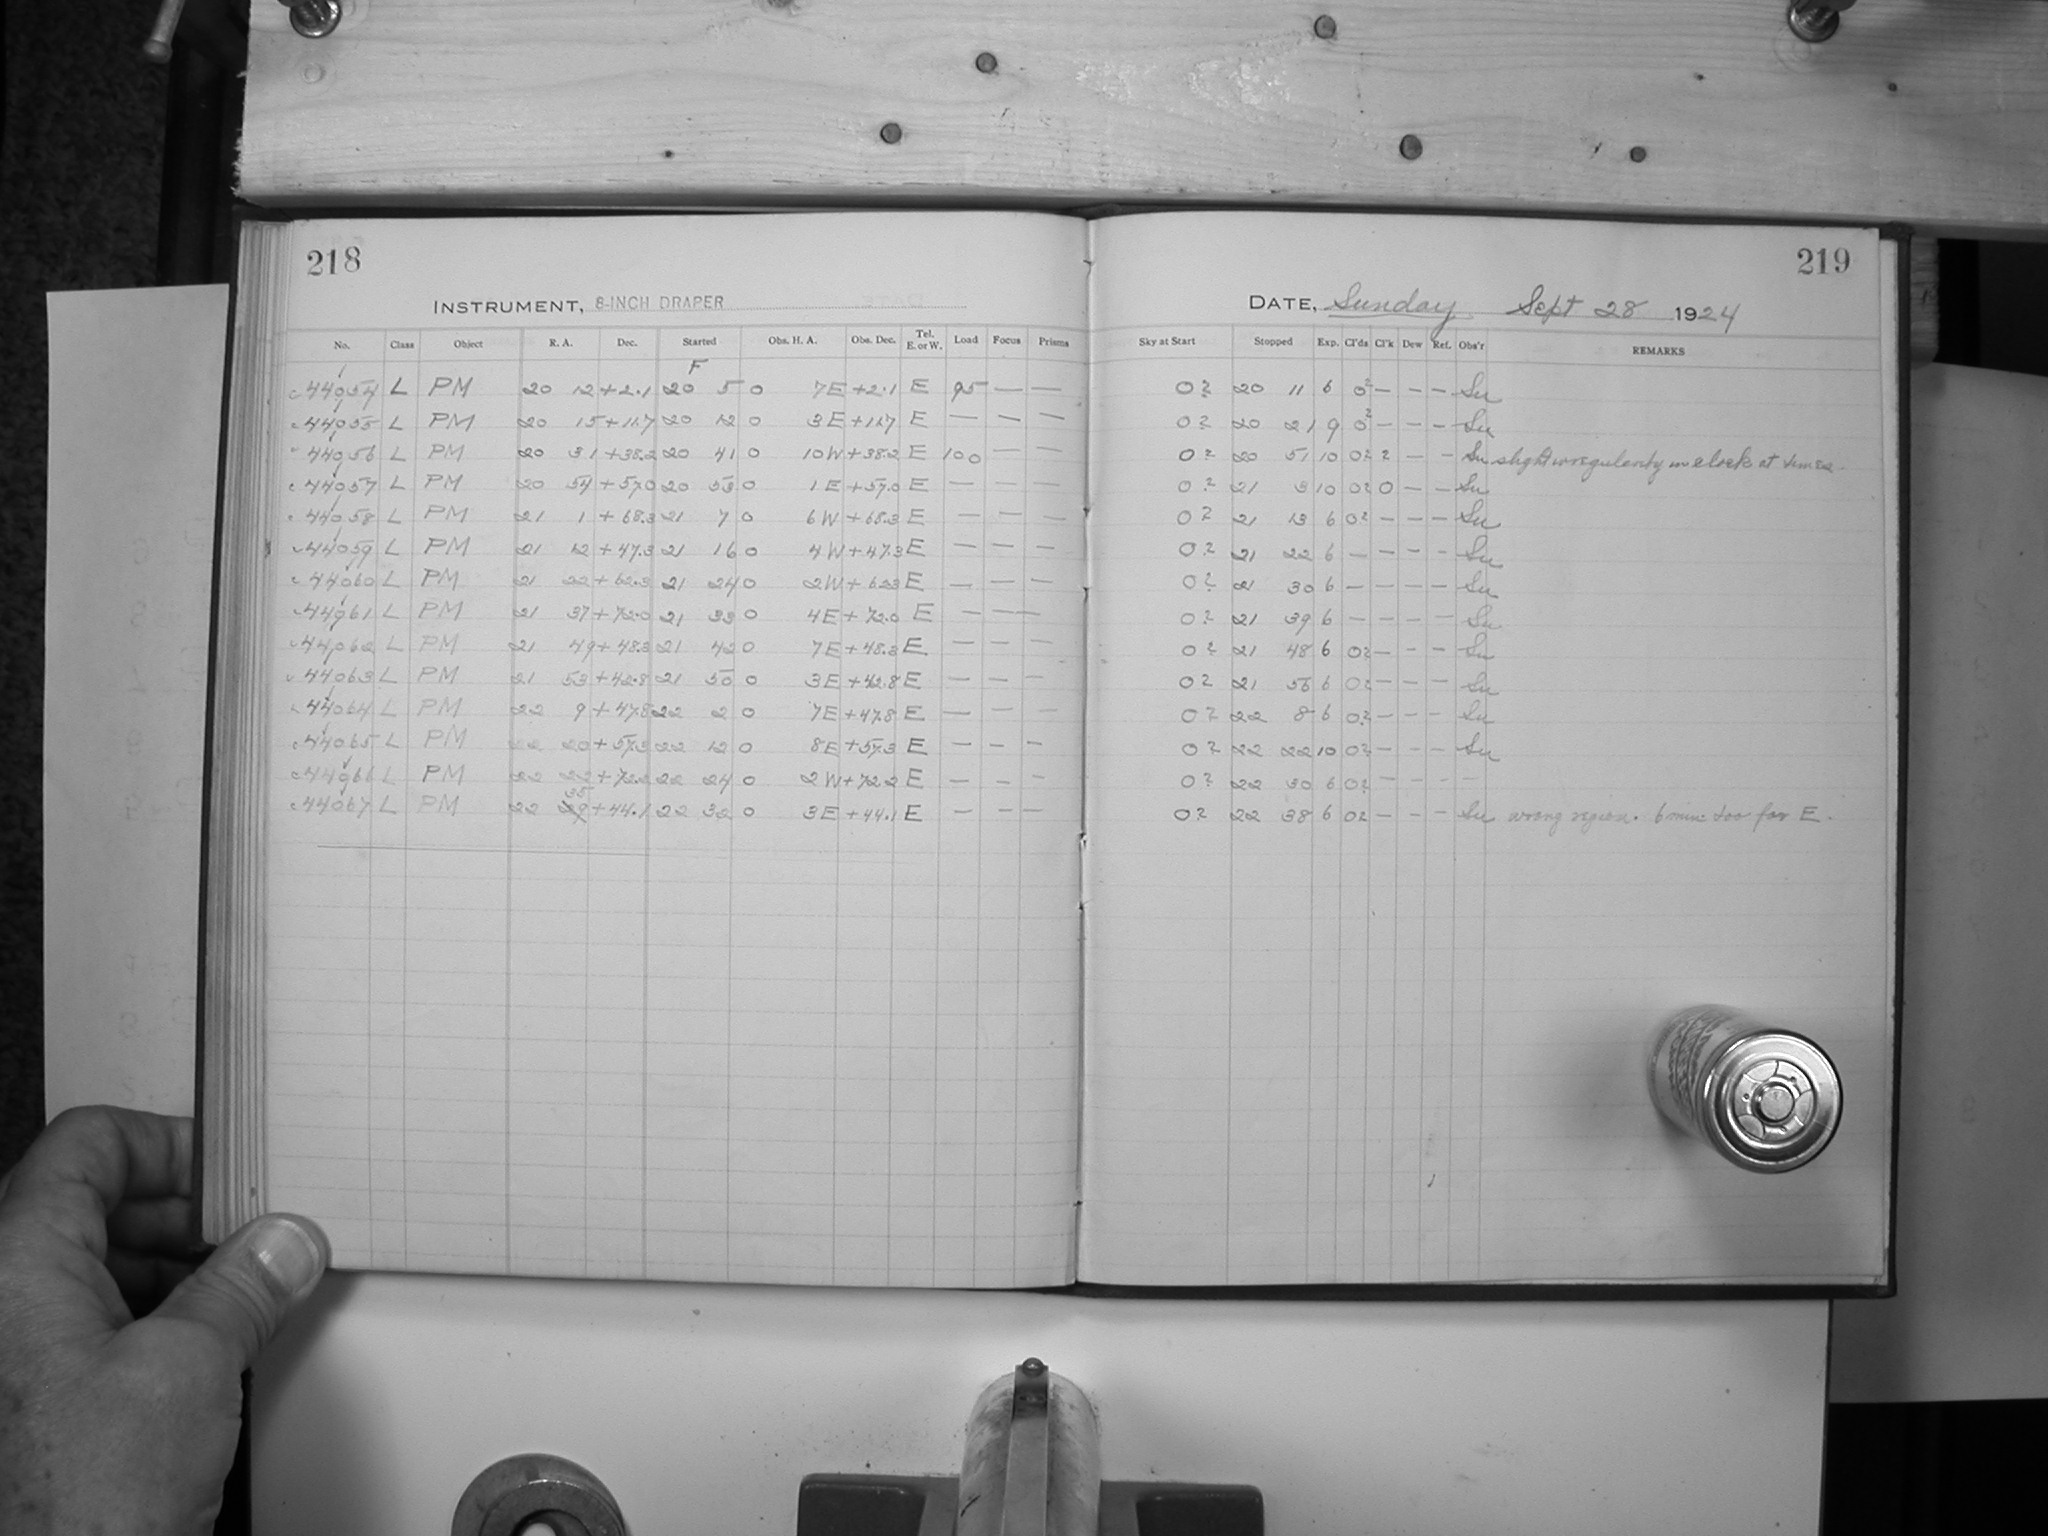 218
INSTRUMENT, 8-INCH DRAPER
No. Class Object R. A. Dec. Started Obs. H. A. Obs. Dec. Tel. E. or W. Load Focus Prisms
F
44054 L PM 20 12 +2.1 20 5 0 7E +2.1 E 95 — —
44055 L PM 20 15 +11.7 20 12 0 3E +11.7 E — — —
44056 L PM 20 31 +38.2 20 41 0 10W +38.2 E 100 — —
44057 L PM 20 54 +57.0 20 53 0 1E +57.0 E — — —
44058 L PM 21 1 +68.3 21 7 0 6W +68.3 E — — —
44059 L PM 21 12 +47.3 21 16 0 4W +47.3 E — — —
44060 L PM 21 22 +62.3 21 24 0 2W +623 E — — —
44061 L PM 21 37 +72.0 21 33 0 4E +72.0 E — — —
44062 L PM 21 49 +48.3 21 42 0 7E +48.3 E — — —
44063 L PM 21 53 +42.8 21 50 0 3E +42.8 E — — —
44064 L PM 22 9 +47.8 22 2 0 7E +47.8 E — — —
44065 L PM 22 20 +57.3 22 12 0 8E +57.3 E — — —
44066 L PM 22 22 +72.2 22 24 0 2W +72.2 E — — —
35
44067 L PM 22 29 +44.1 22 32 0 3E +44.1 E — — —
219
DATE, Sunday Sept 28 1924
Sky at Start Stopped Exp. Cl'ds Cl'k Dew Ref. Obs'r REMARKS
0? 20 11 6 0? — — — Su
0? 20 21 9 0? — — — Su
0? 20 51 10 0? 2 — — Su slight irregularity in clock at times.
0? 21 3 10 0? 0 — — Su
0? 21 13 6 0? — — — Su
0? 21 22 6 — — — — Su
0? 21 30 6 — — — — Su
0? 21 39 6 — — — — Su
0? 21 48 6 0? — — — Su
0? 21 56 6 0? — — — Su
0? 22 8 6 0? — — — Su
0? 22 22 10 0? — — — Su
0? 22 30 6 0? — — — —
0? 22 38 6 0? — — — Su wrong region. 6 min too far E.